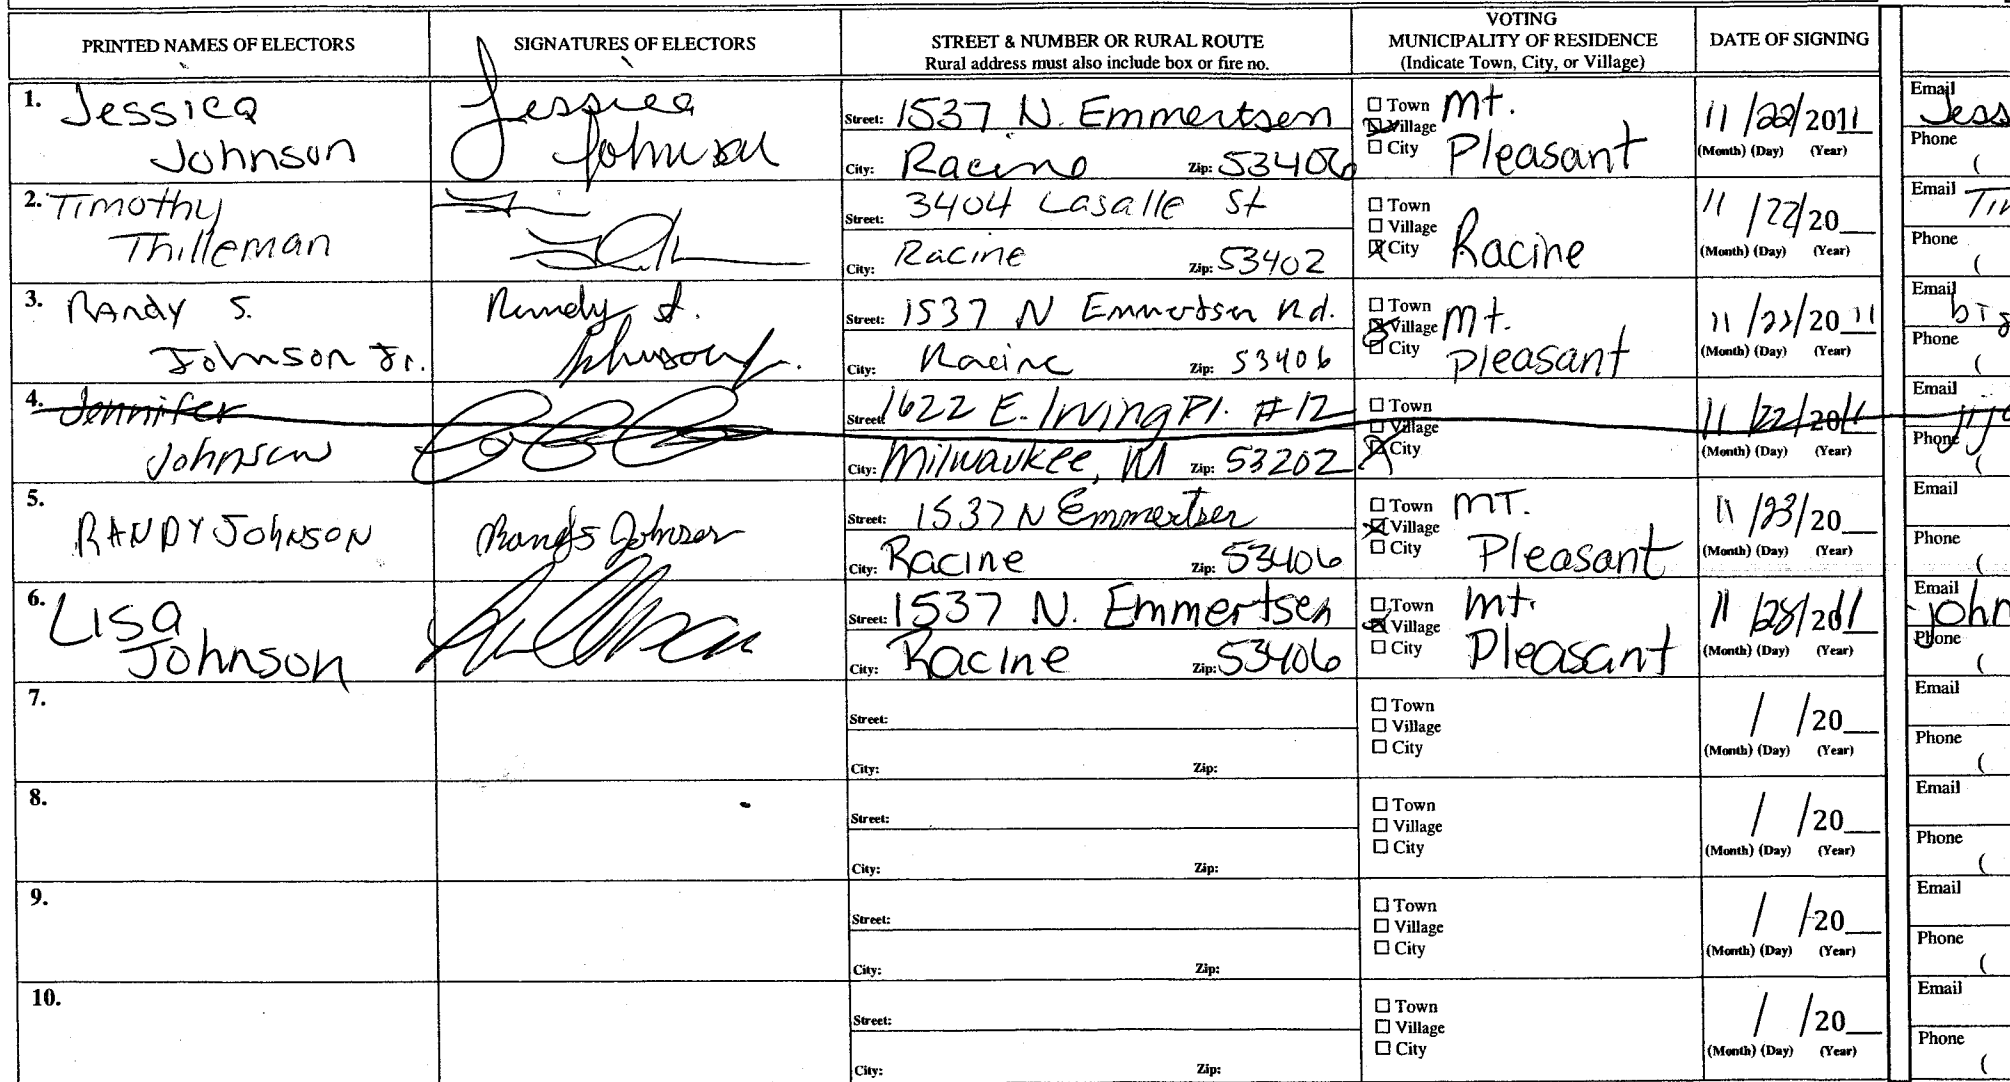 PRINTED NAMES OF ELECTORS
SIGNATURES OF ELECTORS
STREET & NUMBER OR RURAL ROUTE
Rural address must also include box or fire no.
VOTING
MUNICIPALITY OF RESIDENCE
(Indicate Town, City, or Village)
DATE OF SIGNING
1. Jessica
Johnson
Jessica
Johnson
Street: 1537 N. Emmertsen
City: Racine Zip: 53406
Town
Village
City
Mt.
Pleasant
11/22/2011
(Month) (Day) (Year)
Email Jess
Phone (
2. Timothy
Thilleman
Street: 3404 Lasalle St
City: Racine Zip: 53402
Town
Village
City
Racine
11/22/20
(Month) (Day) (Year)
Email Tim
Phone (
3. RAndy S.
Johnson Jr.
Randy S.
Johnson Jr.
Street: 1537 N Emmertsen Rd.
City: Racine Zip: 53406
Town
Village
City
Mt.
Pleasant
11/22/2011
(Month) (Day) (Year)
Email big
Phone (
4. Jennifer
Johnson
Street: 1622 E. Irving Pl. #12
City: Milwaukee, WI Zip: 53202
Town
Village
City
11/22/2011
(Month) (Day) (Year)
Email
Phone (
5.
RANDY JOHNSON
Randy Johnson
Street: 1537 N Emmertsen
City: Racine Zip: 53406
Town
Village
City
MT.
Pleasant
11/23/20
(Month) (Day) (Year)
Email
Phone (
6. Lisa
Johnson
Street: 1537 N. Emmertsen
City: Racine Zip: 53406
Town
Village
City
Mt.
Pleasant
11/28/2011
(Month) (Day) (Year)
Email john
Phone (
7.
Street:
City: Zip:
Town
Village
City
/ /20
(Month) (Day) (Year)
Email
Phone (
8.
Street:
City: Zip:
Town
Village
City
/ /20
(Month) (Day) (Year)
Email
Phone (
9.
Street:
City: Zip:
Town
Village
City
/ /20
(Month) (Day) (Year)
Email
Phone (
10.
Street:
City: Zip:
Town
Village
City
/ /20
(Month) (Day) (Year)
Email
Phone (